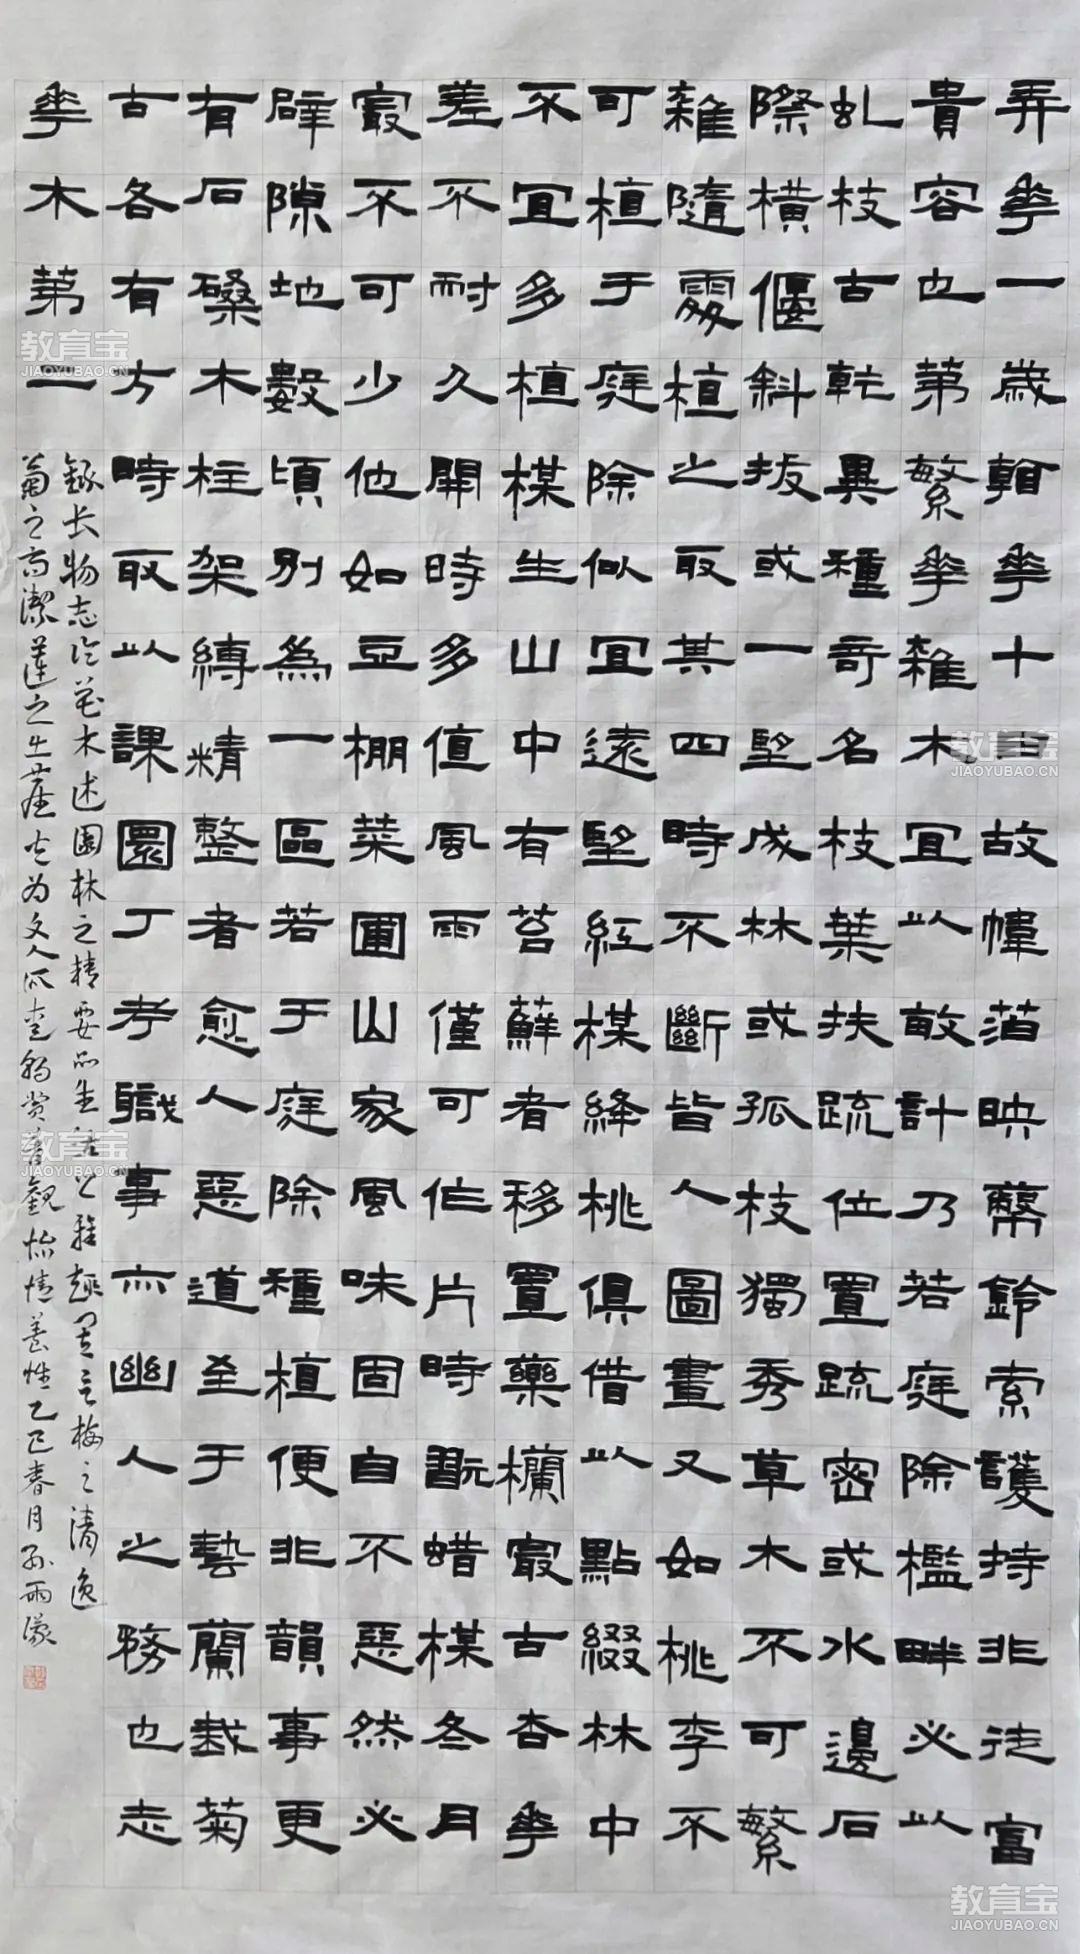 弄華一歲看華十日故幃箔映蔽鈴索護持非徒富
貴容也第繁華雜木宜以畝計乃若庭除檻畔必以
虬枝古乾異種奇名枝葉扶疏位置疏密或水邊石
際橫偃斜披或一望成林或孤枝獨秀草木不可繁
雜隨處植之取其四時不斷皆入圖畫又如桃李不
可植于庭除似宜遠望紅楳絳桃俱借以點綴林中
不宜多植楳生山中有苔蘚者移置藥欄最古杏華
差不耐久開時多值風雨僅可作片時翫蜡楳冬月
最不可少他如豆棚菜圃山家風味固自不惡然必
辟隙地數頃別為一區若于庭除種植便非韻事更
有石磉木柱架縛精整者愈入惡道至于藝蘭栽菊
古各有方時取以課園丁考職事亦幽人之務也志
華木第一
錄长物志论花木述園林之精要品生活之雅趣梅之清逸
菊之高潔蓮之出塵为文人所赏静觀怡情養性乙巳春月孙雨濛
教育宝
JIAOYUBAO.CN
教育宝
JIAOYUBAO.CN
教育宝
JIAOYUBAO.CN
教育宝
JIAOYUBAO.CN